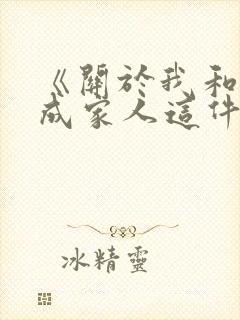 《關於我和
成家人這件
冰精靈